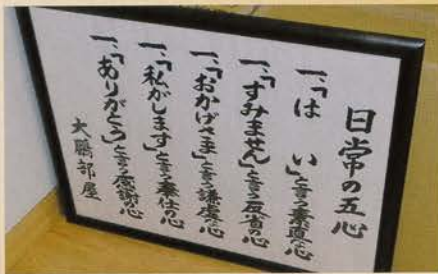 日常の五心
一、「はい」と言う素直な心
一、「すみません」と言う反省の心
一、「おかげさま」と言う謙虚な心
一、「私がします」と言う奉仕の心
一、「ありがとう」と言う感謝の心
大鵬部屋